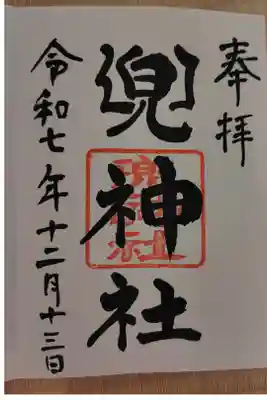 奉拝
兜神社
令和七年十二月十三日